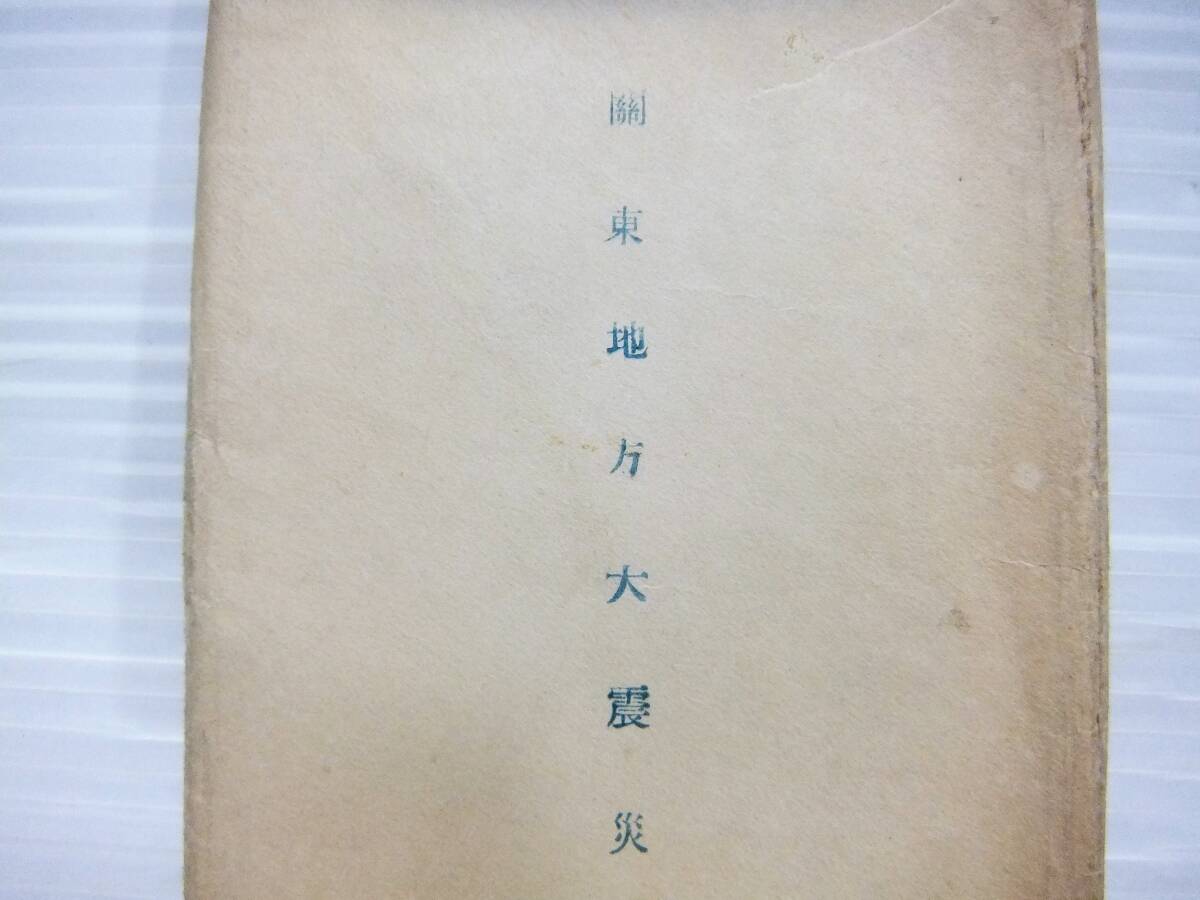 關東地方大震災